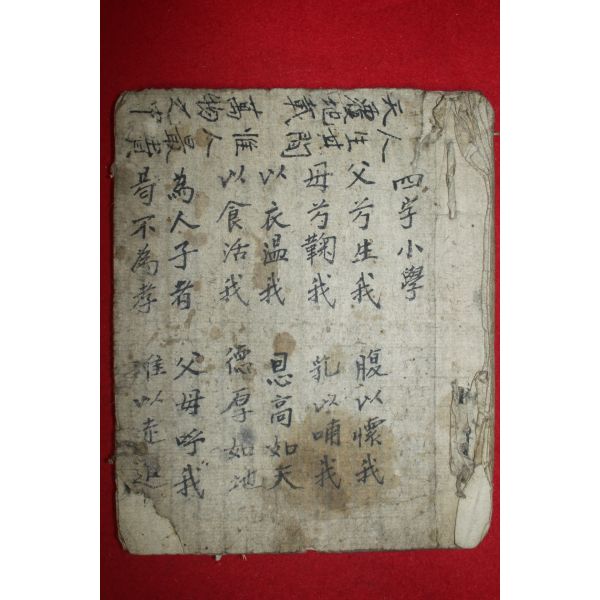 天覆地載萬物之中
人生其間惟人最貴
四字小學
父兮生我 腹以懷我
母兮鞠我 乳以哺我
以衣温我 恩高如天
以食活我 德厚如地
為人子者 父母呼我
曷不為孝 以走